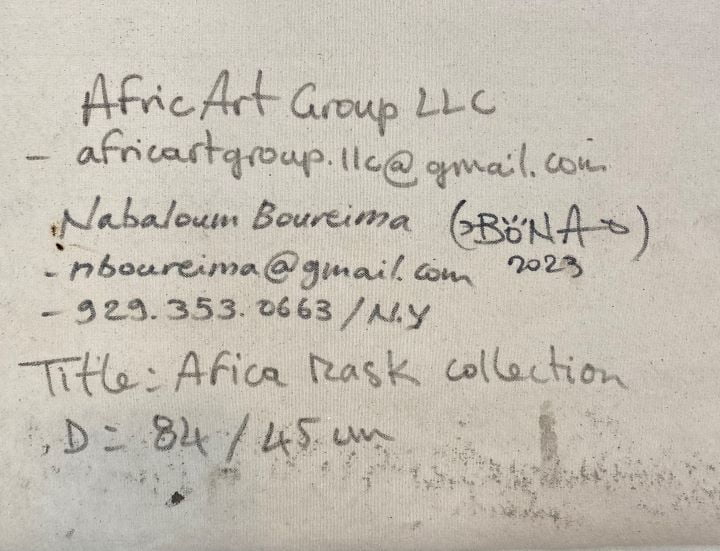 Afric Art Group LLC
- africartgroup.llc@gmail.com
Nabaloum Boureima (BöNA)
2023
- nboureima@gmail.com
- 929.353.0663/N.Y
Title: Afica Mask collection
D = 84 / 45 cm